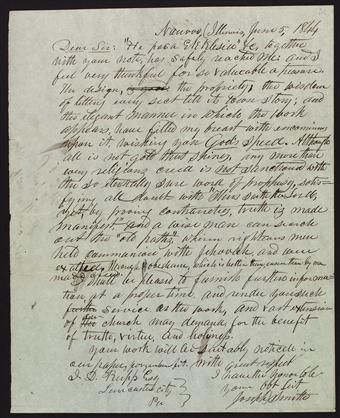 Nauvoo, Illinois, June 5, 1844
Dear Sir: "He pasa Ekklesia" &c, together
with your note, has safely reached me; and I
feel very thankful for so valuable a treasure.
The design, the propriety, the wisdom
of letting every sect tell its own story; and
the elegant manner in which the work
appears, have filled my breast with encomiums
upon it, wishing you God speed. Although
all is not gold that shines, any more than
every religious creed is not sanctioned with
the so eternally sure word of prophesy, satis-
fying all doubt with "Thus saith the Lord",
yet, "by proving contrarieties, truth is made
manifest," and a wise man can search
out the "old paths", wherein righteous men
held communion with Jehovah, and were
exalted, through obedience, which is better than
I shall be pleased to furnish further informa-
tion, at a proper time, and render you such
further service as the work, and vast extension
of our church may demand, for the benefit
of truth, virtue, and holiness.
Your work will be suitably noticed in
our paper, for your benefit. With great respect
I. D. Rupp Esq I have the honor to be
Lancaster city your obt Servt
Pa. Joseph Smith